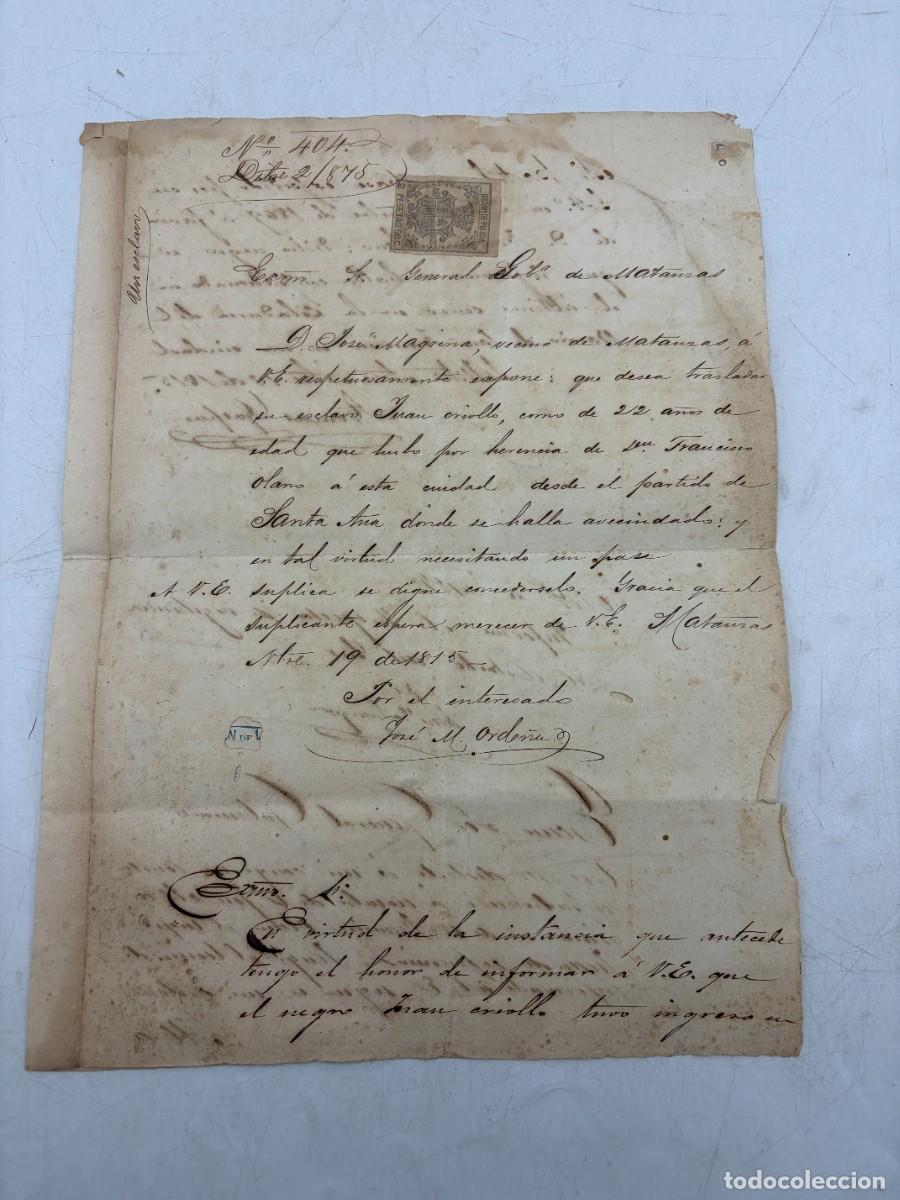 No. 404.
Dibre 2/875
Un esclavo
2 PESETAS
Excmo. Sr. General Gobr. de Matanzas
D. José Magrina, vecino de Matanzas, á
V.E. respetuosamente expone: que desea trasladar
su esclavo Juan criollo, como de 22 años de
edad que hubo por herencia de Dn Francisco
Olano á esta ciudad desde el partido de
Santa Ana donde se halla avecindado: y
en tal virtud necesitando un pase
A V.E. suplica se digne concederselo. Gracia que el
suplicante espera merecer de V.E. Matanzas
Nbre. 19 de 1875
Por el interesado
José M. Ordeña
Excmo. Sr.
En virtud de la instancia que antecede
tengo el honor de informar á V.E. que
el negro Juan criollo tuvo ingreso en
todocoleccion